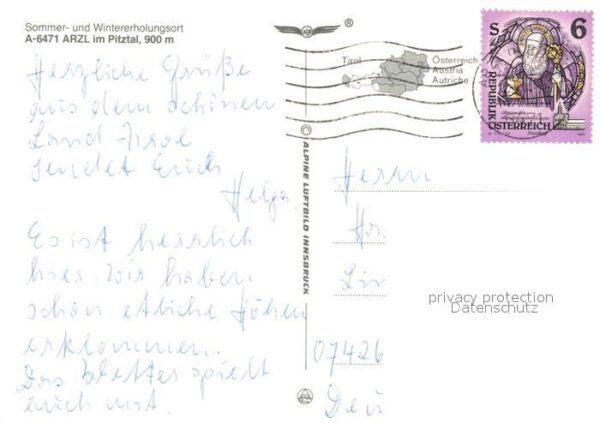 Sommer- und Wintererholungsort
A-6471 ARZL im Pitztal, 900 m
Herzliche Grüße
aus dem schönen
Land Tirol
sendet Erich
Helga.
Es ist herrlich
hier wir haben
schon etliche Höhen
erklommen.
Das Wetter spielt
auch mit.
®
Tirol
Österreich
Austria
Autriche
6
REPUBLIK
ÖSTERREICH
ALPINE LUFTBILD INNSBRUCK
Herrn
Hr.
Lin
07426
privacy protection
Datenschutz